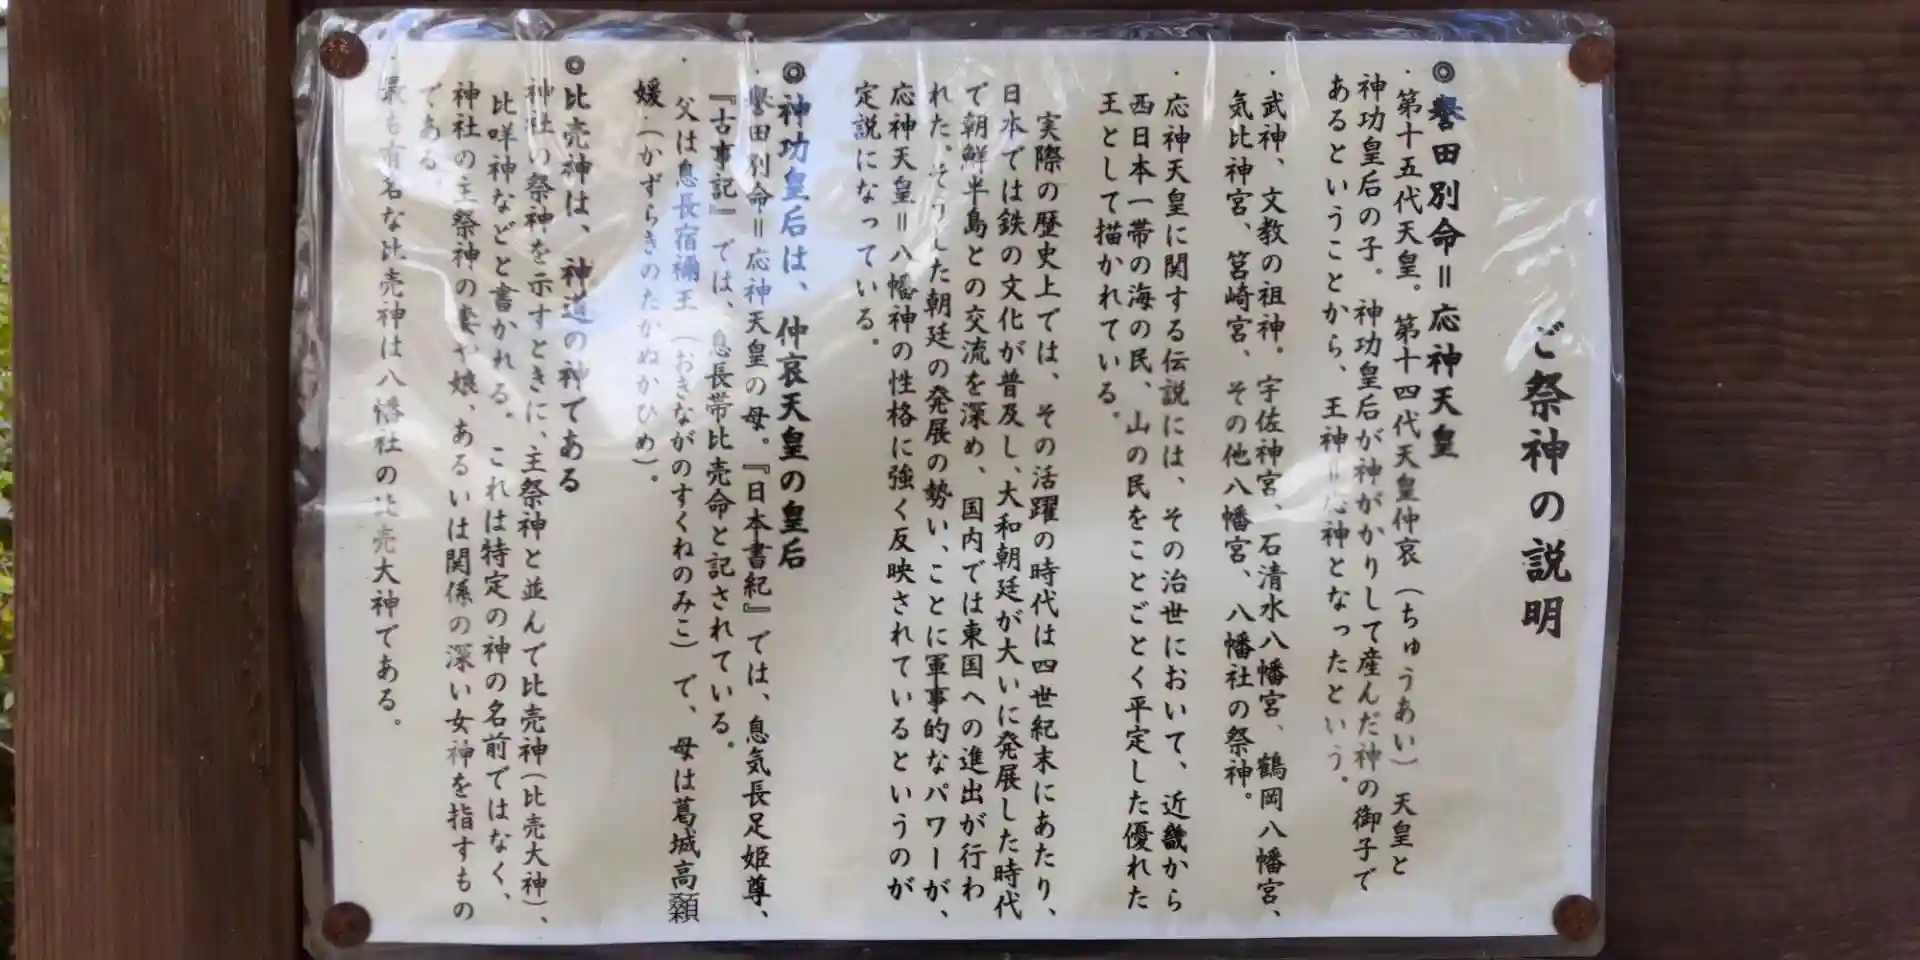 ご祭神の説明
◎誉田別命＝応神天皇
・第十五代天皇。第十四代天皇仲哀（ちゅうあい）天皇と
神功皇后の子。神功皇后が神がかりして産んだ神の御子で
あるということから、王神＝応神となったという。
・武神、文教の祖神。宇佐神宮、石清水八幡宮、鶴岡八幡宮、
気比神宮、筥崎宮、その他八幡宮、八幡社の祭神。
・応神天皇に関する伝説には、その治世において、近畿から
西日本一帯の海の民、山の民をことごとく平定した優れた
王として描かれている。
実際の歴史上では、その活躍の時代は四世紀末にあたり、
日本では鉄の文化が普及し、大和朝廷が大いに発展した時代
で朝鮮半島との交流を深め、国内では東国への進出が行わ
れた。そうした朝廷の発展の勢い、ことに軍事的なパワーが、
応神天皇＝八幡神の性格に強く反映されているというのが
定説になっている。
◎神功皇后は、仲哀天皇の皇后
・誉田別命＝応神天皇の母。『日本書紀』では、息気長足姫尊、
『古事記』では、息長帯比売命と記されている。
・父は息長宿禰王（おきながのすくねのみこ）で、母は葛城高顙
媛（かずらきのたかぬかひめ）。
◎比売神は、神道の神である
神社の祭神を示すときに、主祭神と並んで比売神（比売大神）、
比咩神などと書かれる。これは特定の神の名前ではなく、
神社の主祭神の妻や娘、あるいは関係の深い女神を指すもの
である。
・最も有名な比売神は八幡社の比売大神である。